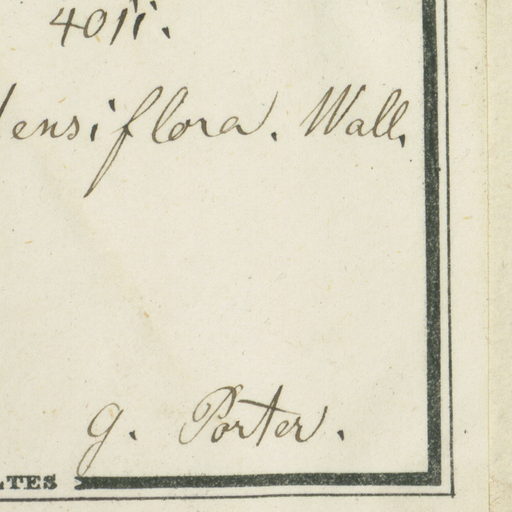 4011.
densiflora. Wall.
G. Porter.